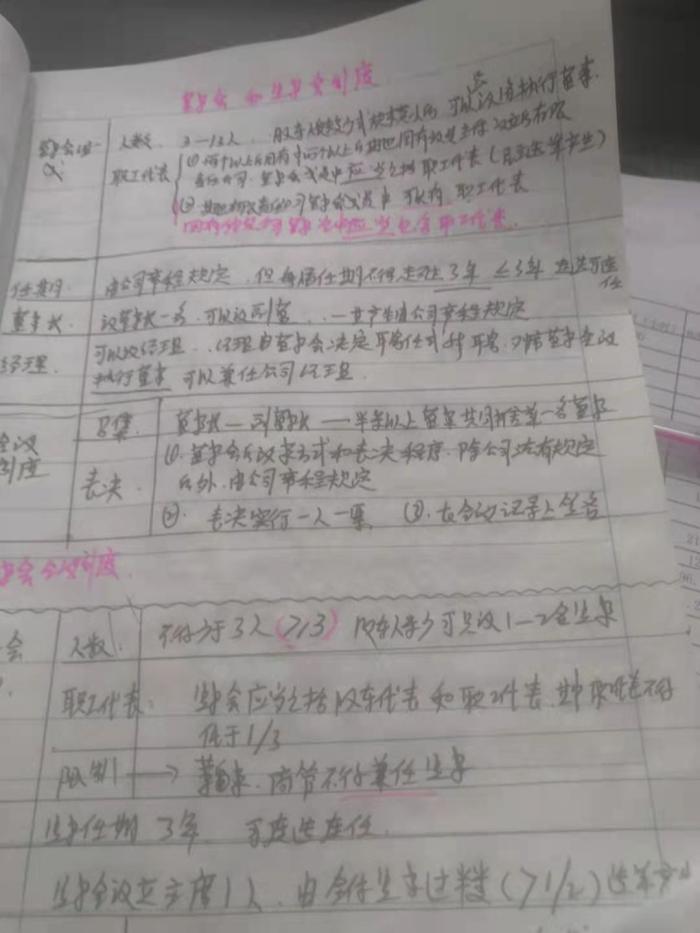 董事会和监事会制度
董事会组成 人数 3—13人. 股东人数较少或规模较小的 可以设1名执行董事.
职工代表 ① 两个以上国有 两个以上其他国有投资主体设立的有限
责任公司. 董事会成员中应当包括职工代表 (民主选举产生)
② 其他有限责任公司董事会成员中 可以有 职工代表
应当包含职工代表.
任期 由公司章程规定, 但每届任期不得超过3年 ≤3年 连选可连任
董事长 设董事长一名, 可以设副董 产生由公司章程规定
经理. 可以设经理. 经理由董事会决定聘任或解聘, 列席董事会议
执行董事 可以兼任公司经理
会议制度 召集. 董事长—副董事长—半数以上董事共同推举一名董事
表决. ①. 董事会的议事方式和表决程序, 除公司法有规定
的外, 由公司章程规定
②. 表决实行一人一票 ③. 在会议记录上签名
事会会议制度.
会 人数. 不得少于3人 (≥3) 股东人数少可只设1—2名监事
职工代表: 监事会应当包括股东代表和职工代表, 其中职代不得
低于1/3
限制 → 董事, 高管不得兼任监事
监事任期 3年 可连选连任.
监事会设立主席1人, 由全体监事过半数 (>1/2) 选举产生